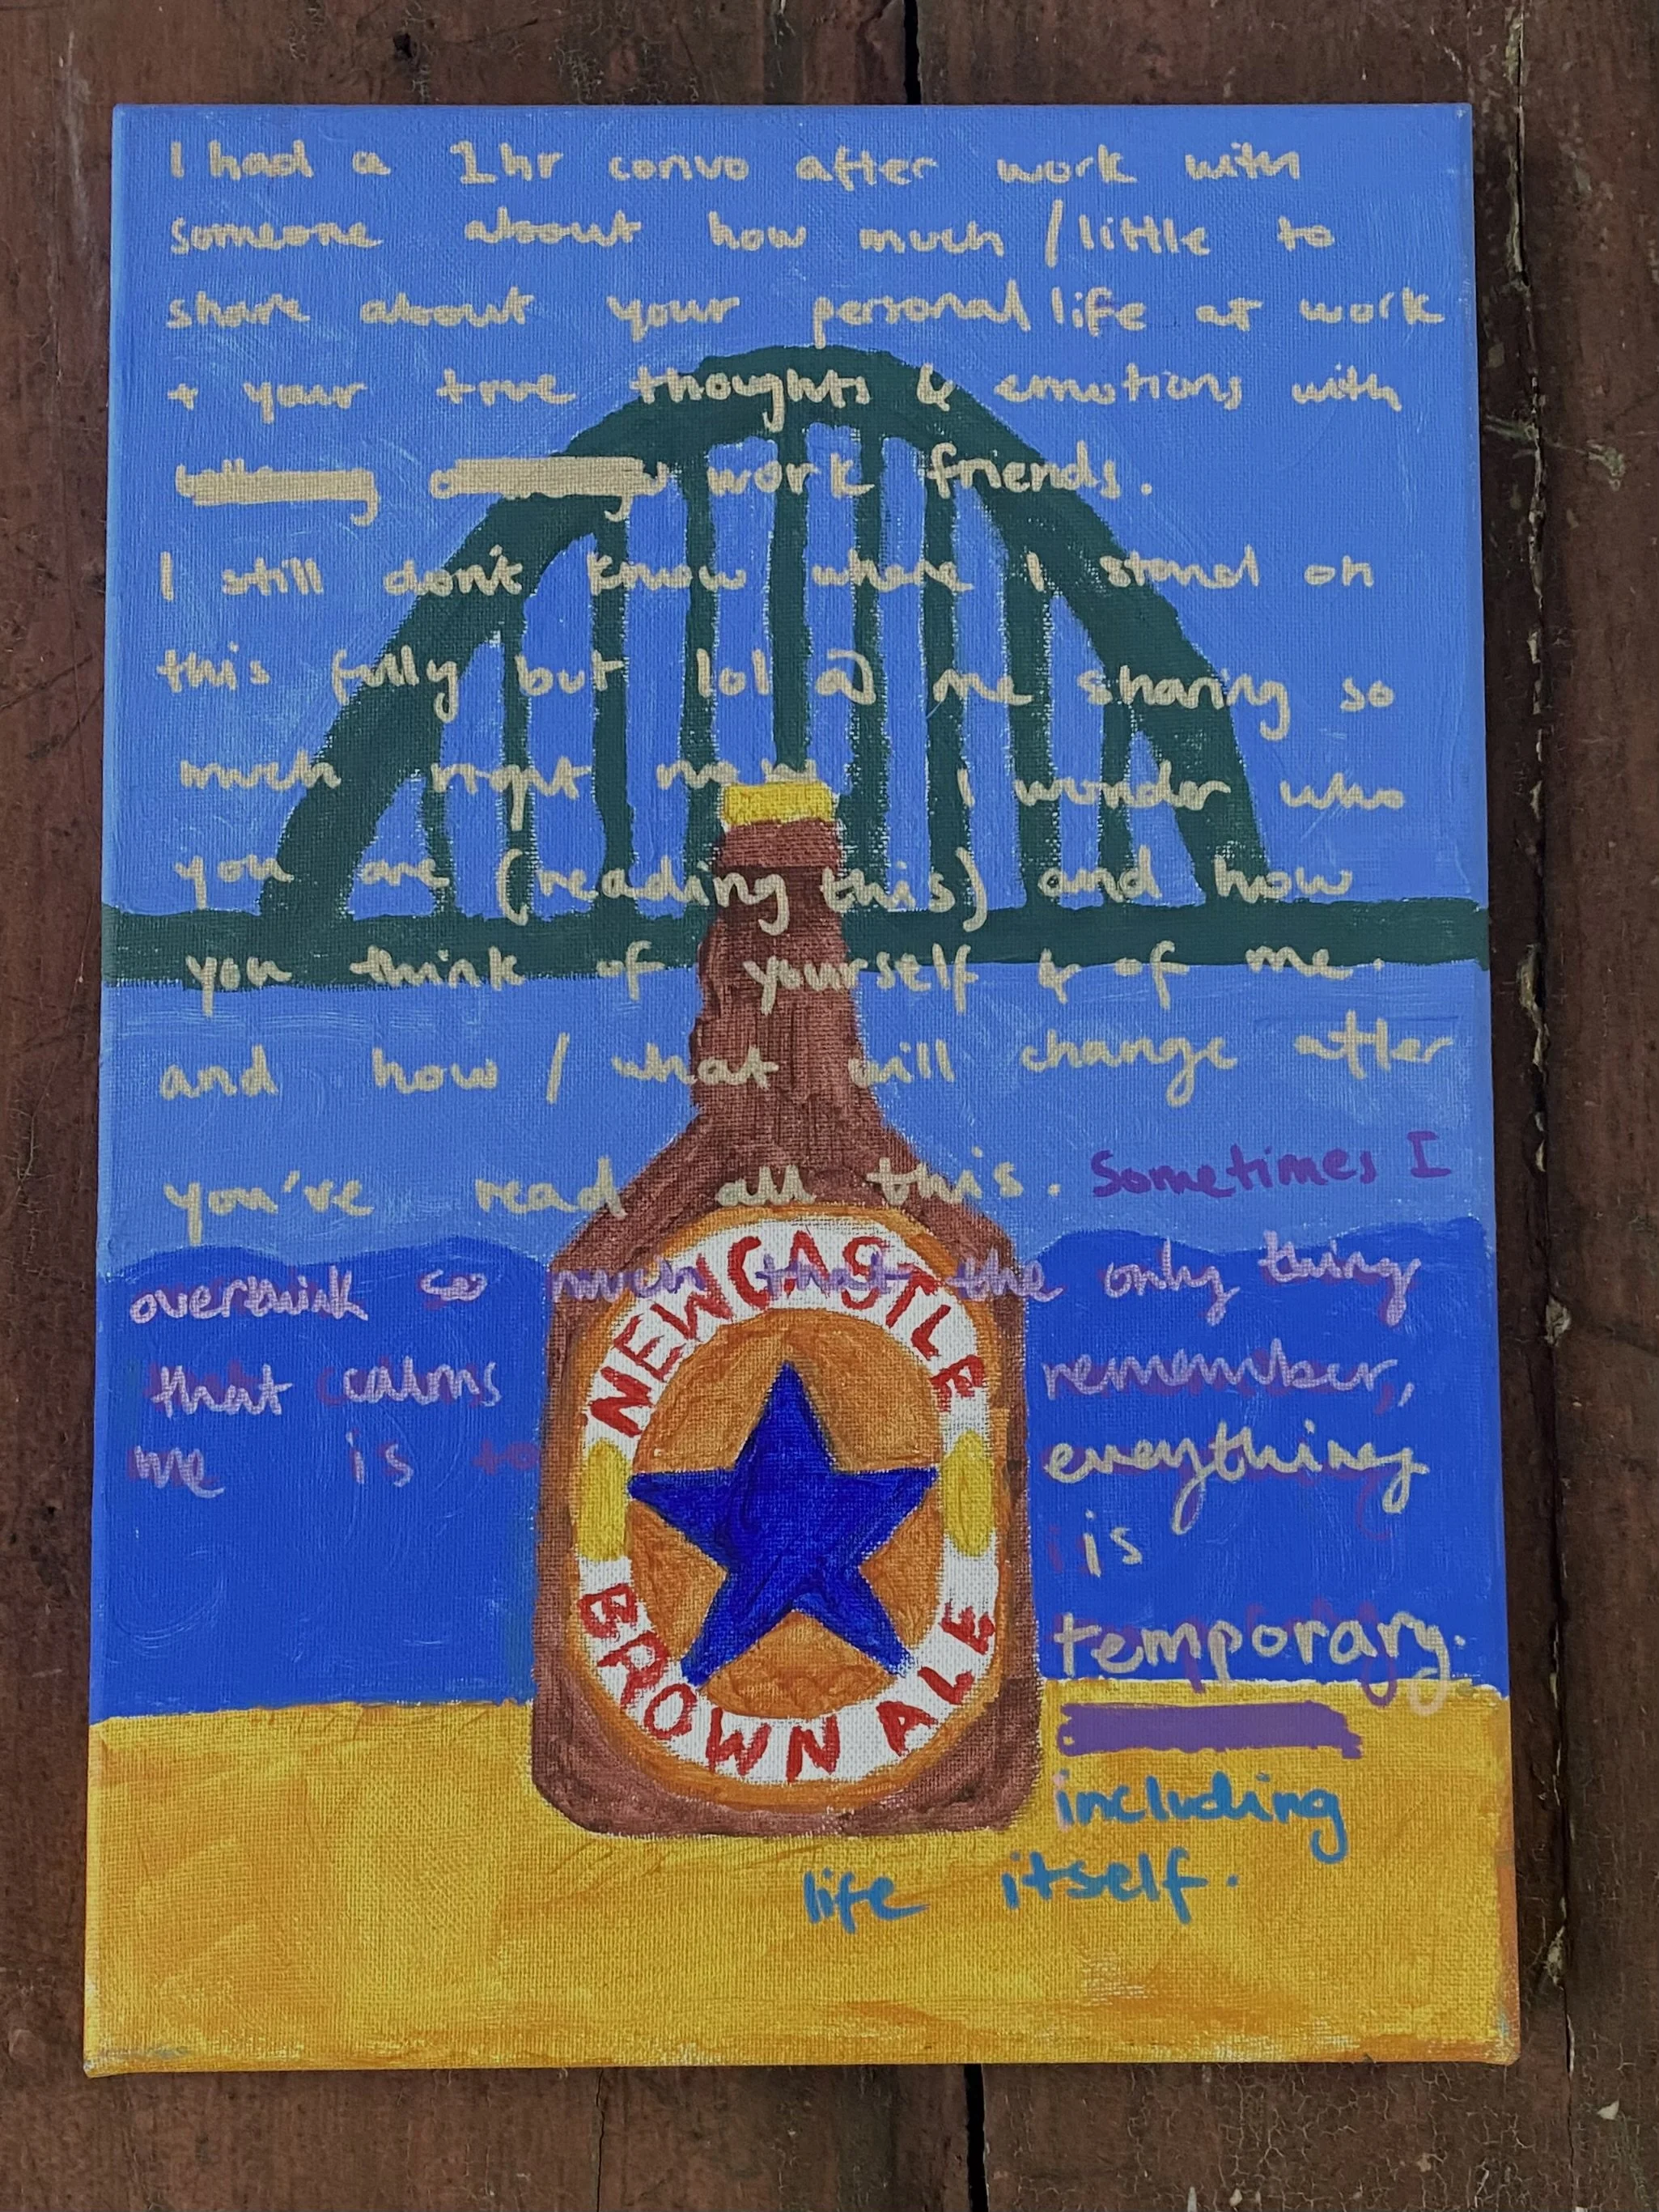 I had a 1hr convo after work with
someone about how much / little to
share about your personal life at work
+ your true thoughts & emotions with
work friends.
I still don't know where I stand on
this fully but lol @ me sharing so
much right now I wonder who
you are (reading this) and how
you think of yourself & of me.
and how / what will change after
you've read all this. Sometimes I
overthink so much that the only thing
that calms remember,
me is to everything
is
temporary.
including
life itself.
NEWCASTLE
BROWN ALE